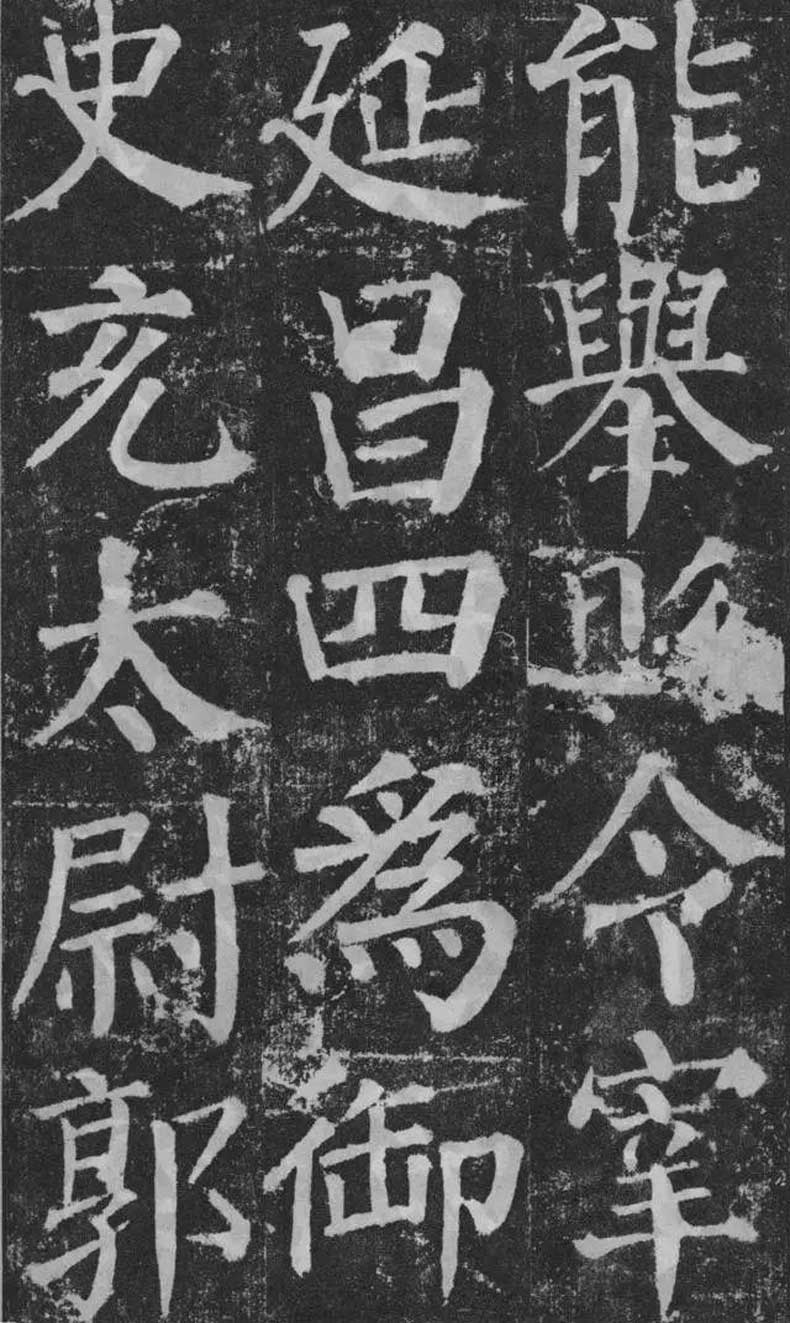 能舉縣令宰
延昌四爲御
史充太尉郭